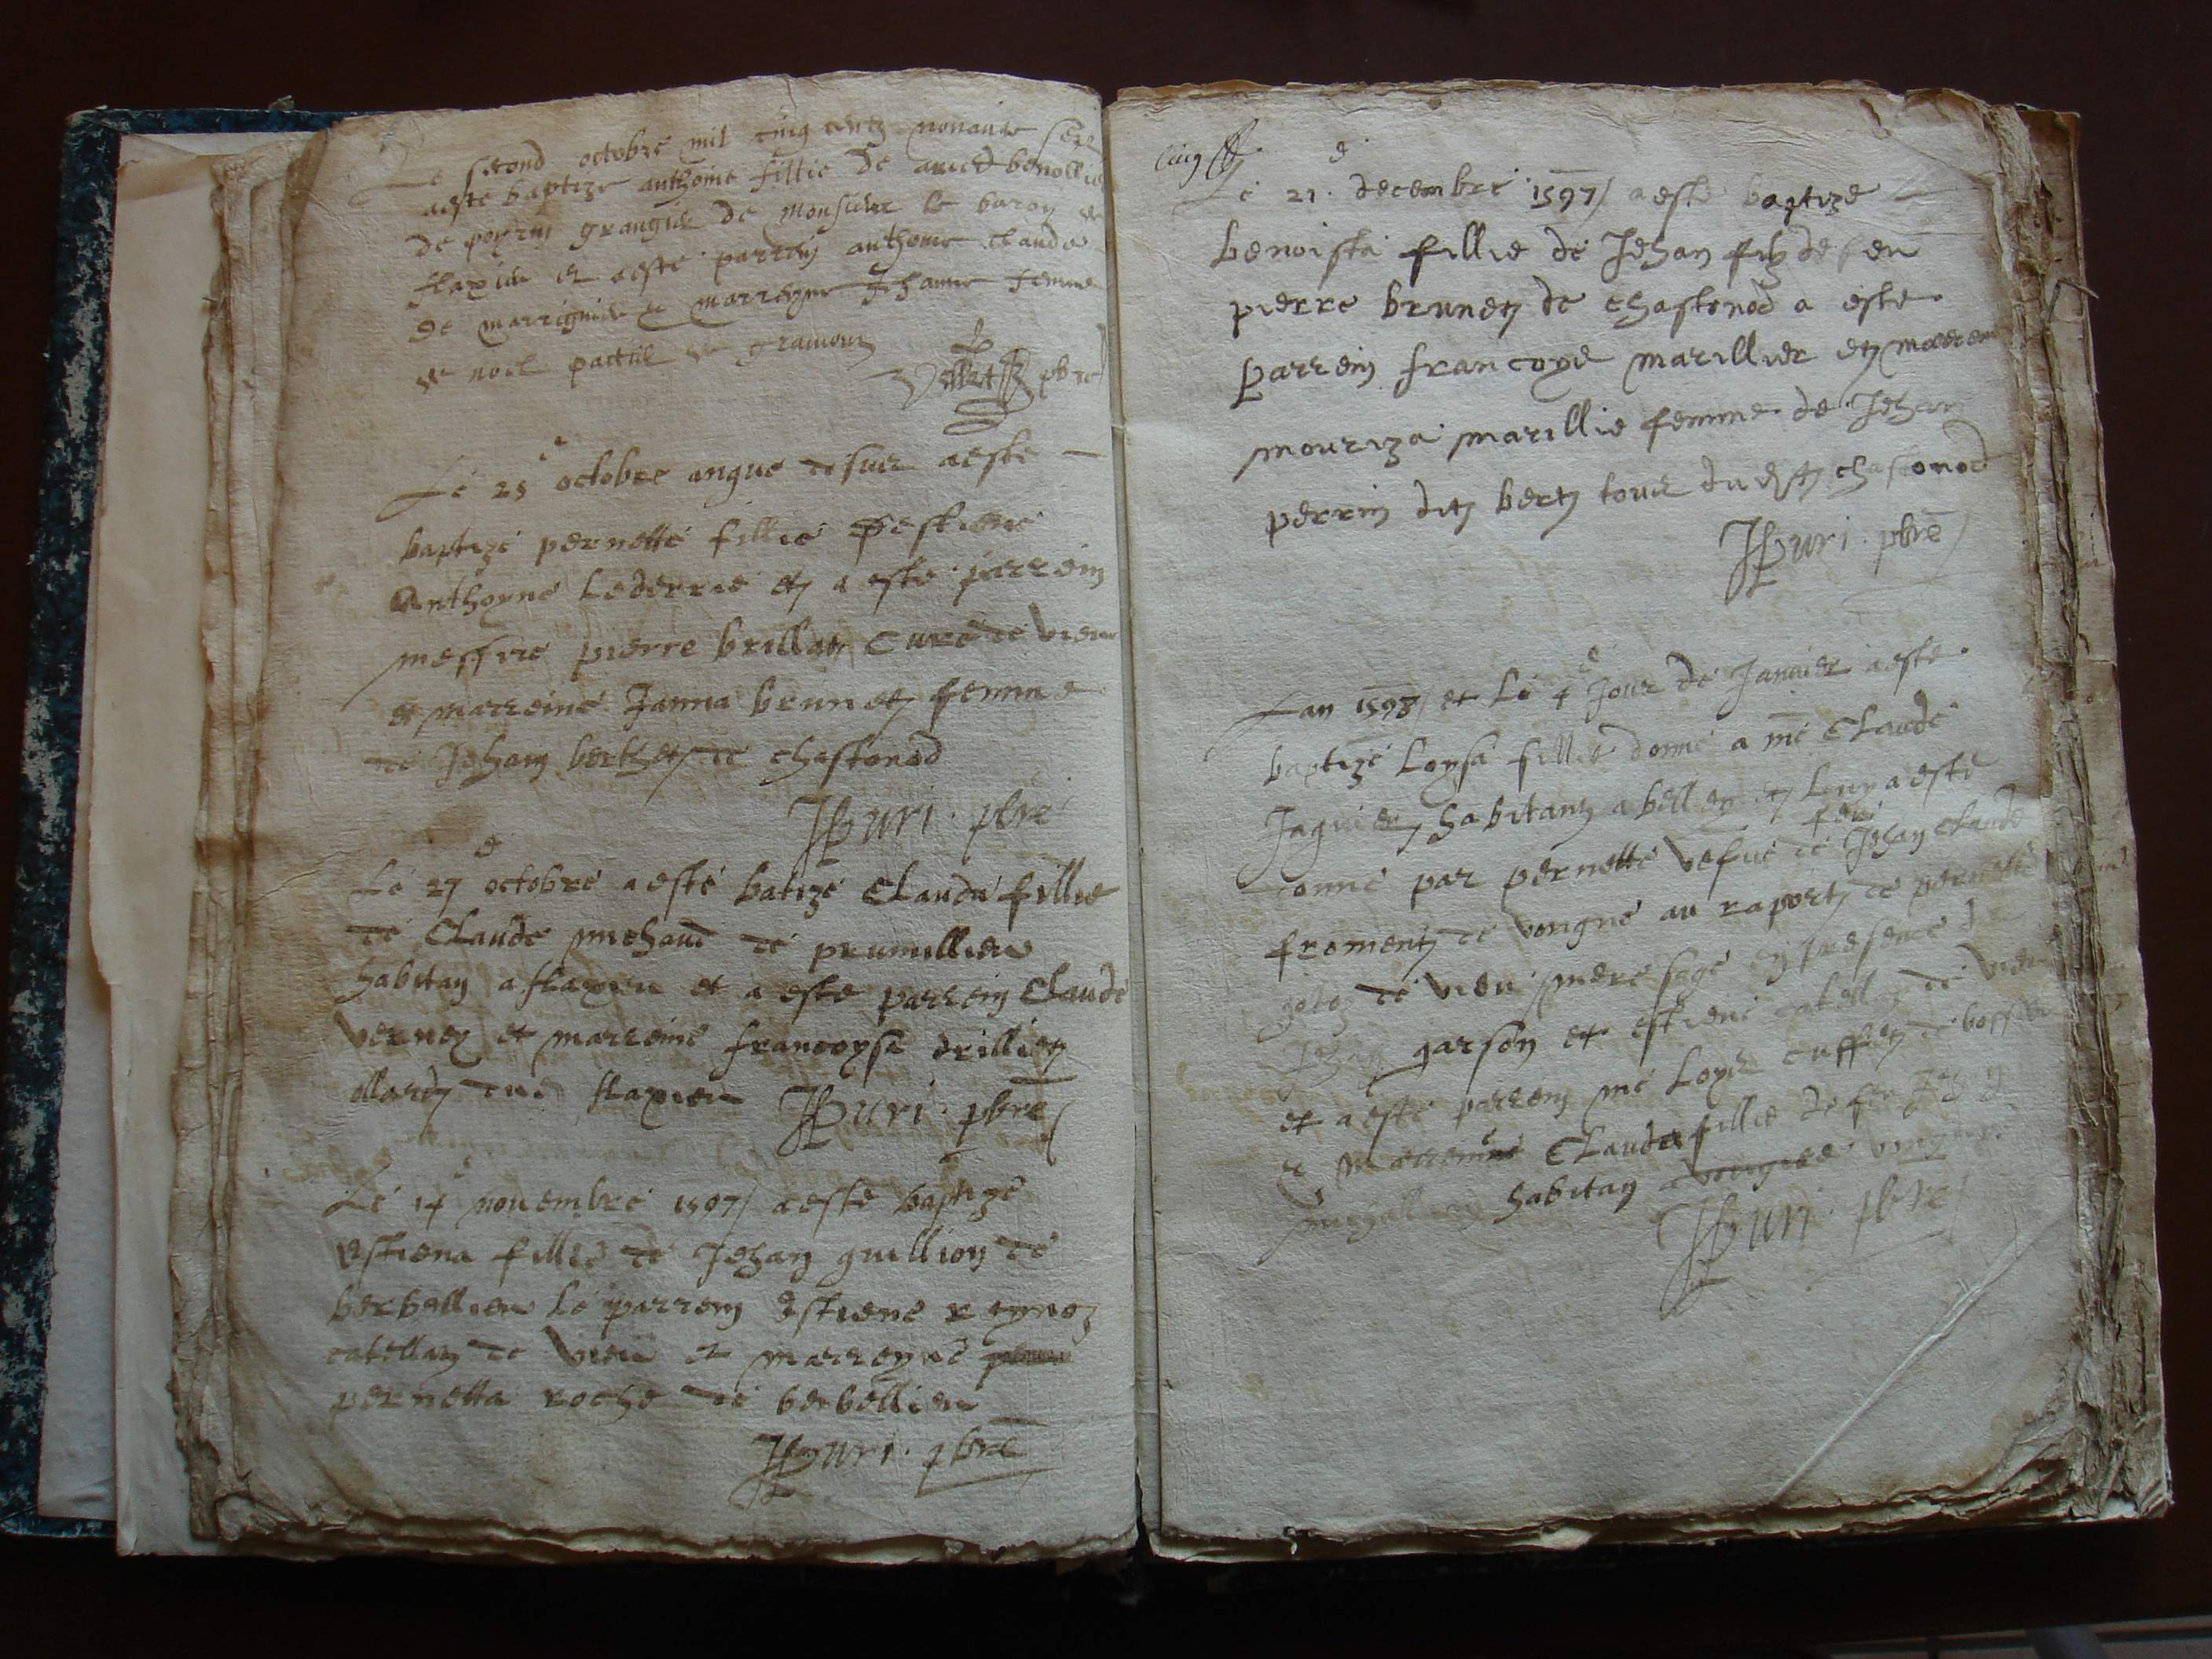 Le second octobre mil cinq centz nonante sept
aeste baptize anthoine fillie de amed benollie
de peyrin grangier de monsieur le baron de
flaxieu et aeste parrin anthoine claude
de marrignieu et marreyne Jehanne femme
de noel
pbre
Le 25 e octobre anque dessus aeste
baptizé pernette fillie destiene
Anthoyne Lederrie et a esté parrein
messire pierre brillat Curé de vieu
et marreine Janna brunet femme
de Jehan berthet de chastonod
JPuri . pbre
Le 27 e octobre aesté batizé Clauda fillie
de Claude michaud de prumillieu
habitan a flaxieu et a este parrein Claude
verney et marreine francoyse drillien
du flaxieu JPuri . pbre
Le 14 e novembre 1597 aeste baptizé
estiena fillie de Jehan guillion de
berbellieu Le parrein Estiene reynoz
catellan de vieu et marreyne
pernetta roche de berbellieu
JPuri . pbre
cinq
Le 21 e . decembre 1597 aesté baptize
benoista fillie de Jehan filz de feu
pierre brunet de chastonod a este
parrein francoys marillier et marreine
mouriza marillie femme de Jehan
perrin dit bert tous dudit chastonod
JPuri . pbre
Lan 1598 et Le 4 e Jour de Janvier aeste
baptizé Loysa fillie donné a me Claude
Jaquier habitant a belley et Luy aeste
donné par pernette vefue de feu Jehan Claude
froment de vongne au raport de pernette
de vieu mere sage en presence de
Jehan garson et estiene catellan de vieu
et aesté parrein me Loys cuffet de bosseu
et marreine Clauda fillie de feu Jehan
habitan a vongnes
JPuri . pbre